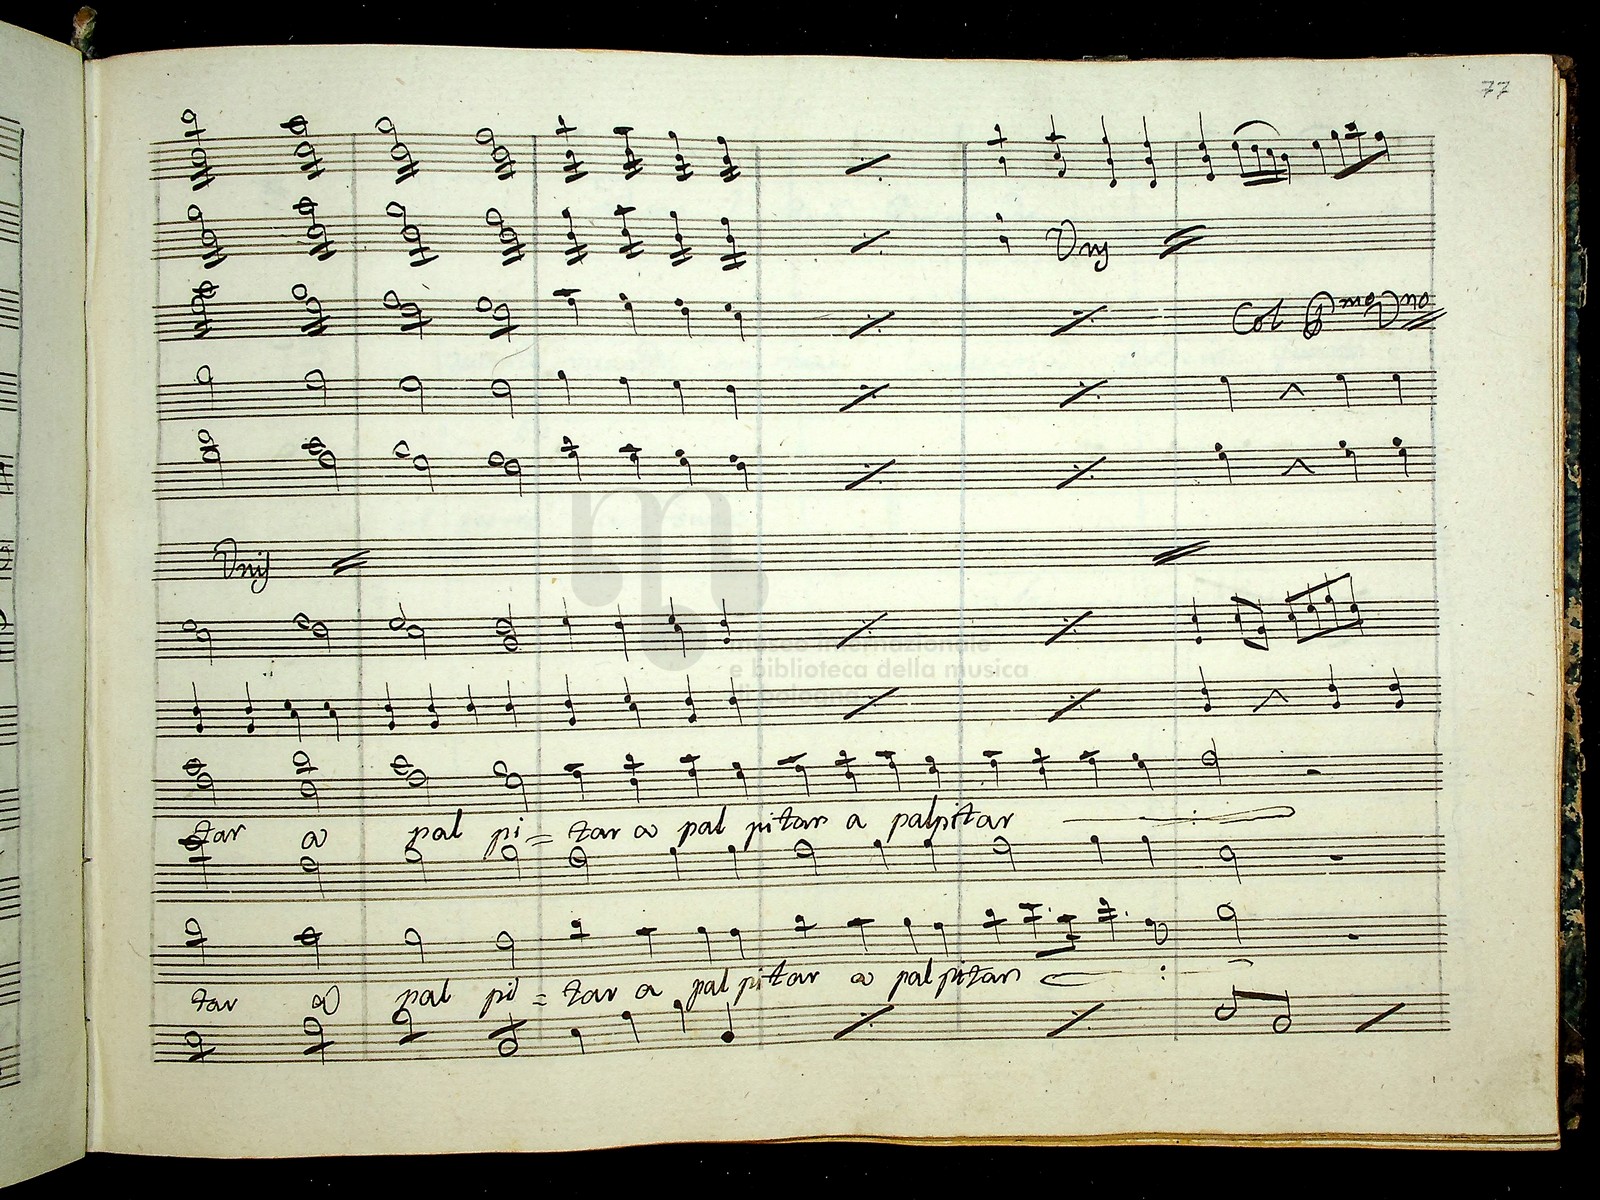 77
Unij
Col Pmo Uno
Unij
museo internazionale
e biblioteca della musica
di bologna
tar a pal pi = tar a pal pitar a palpitar
tar a pal pi = tar a pal pitar a palpitar